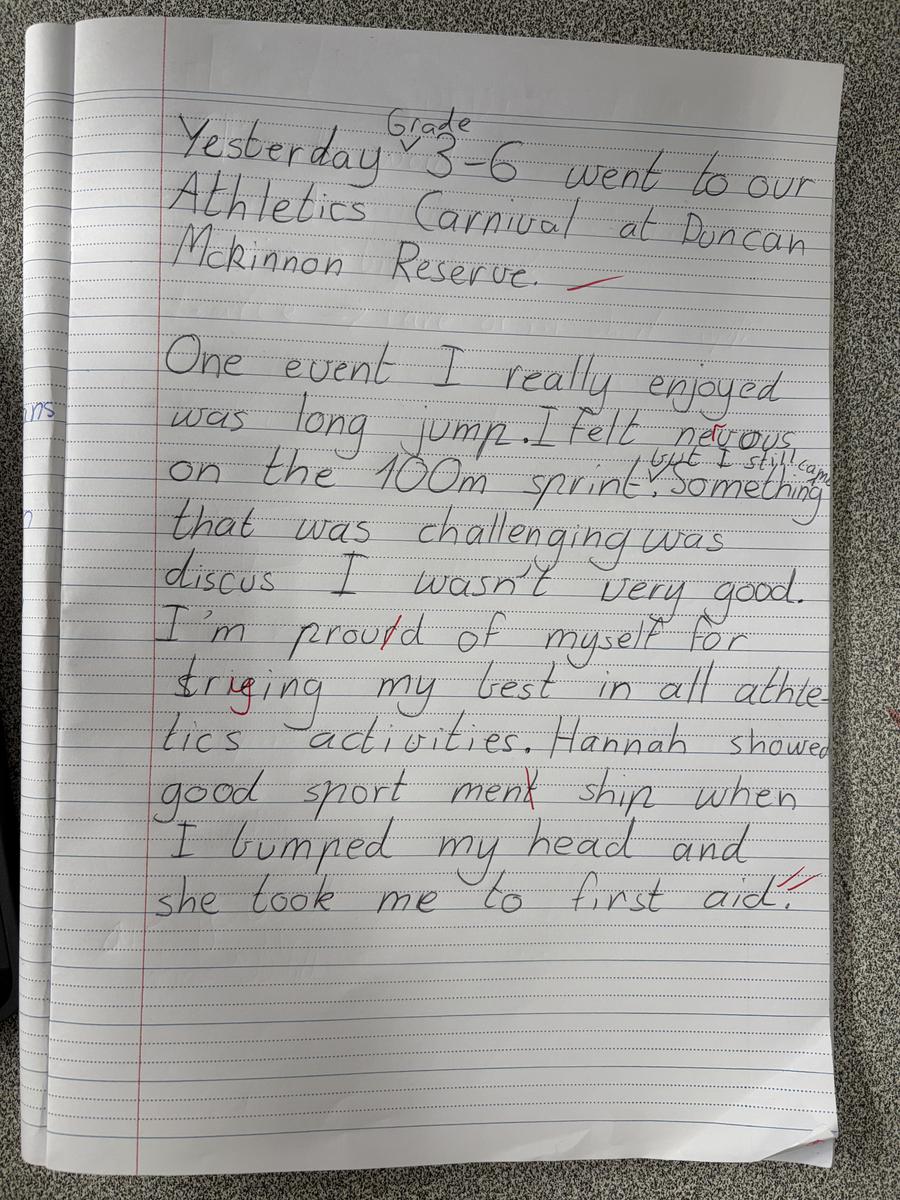 Grade
Yesterday ˅ 3-6 went to our
Athletics Carnival at Duncan
Mckinnon Reserve.
One event I really enjoyed
was long jump. I felt nervous
but I still came
on the 100m sprint. Something
that was challenging was
discus I wasn't very good.
I'm proud of myself for
trying my best in all athle-
tics activities. Hannah showed
good sport men ship when
I bumped my head and
she took me to first aid.
ns